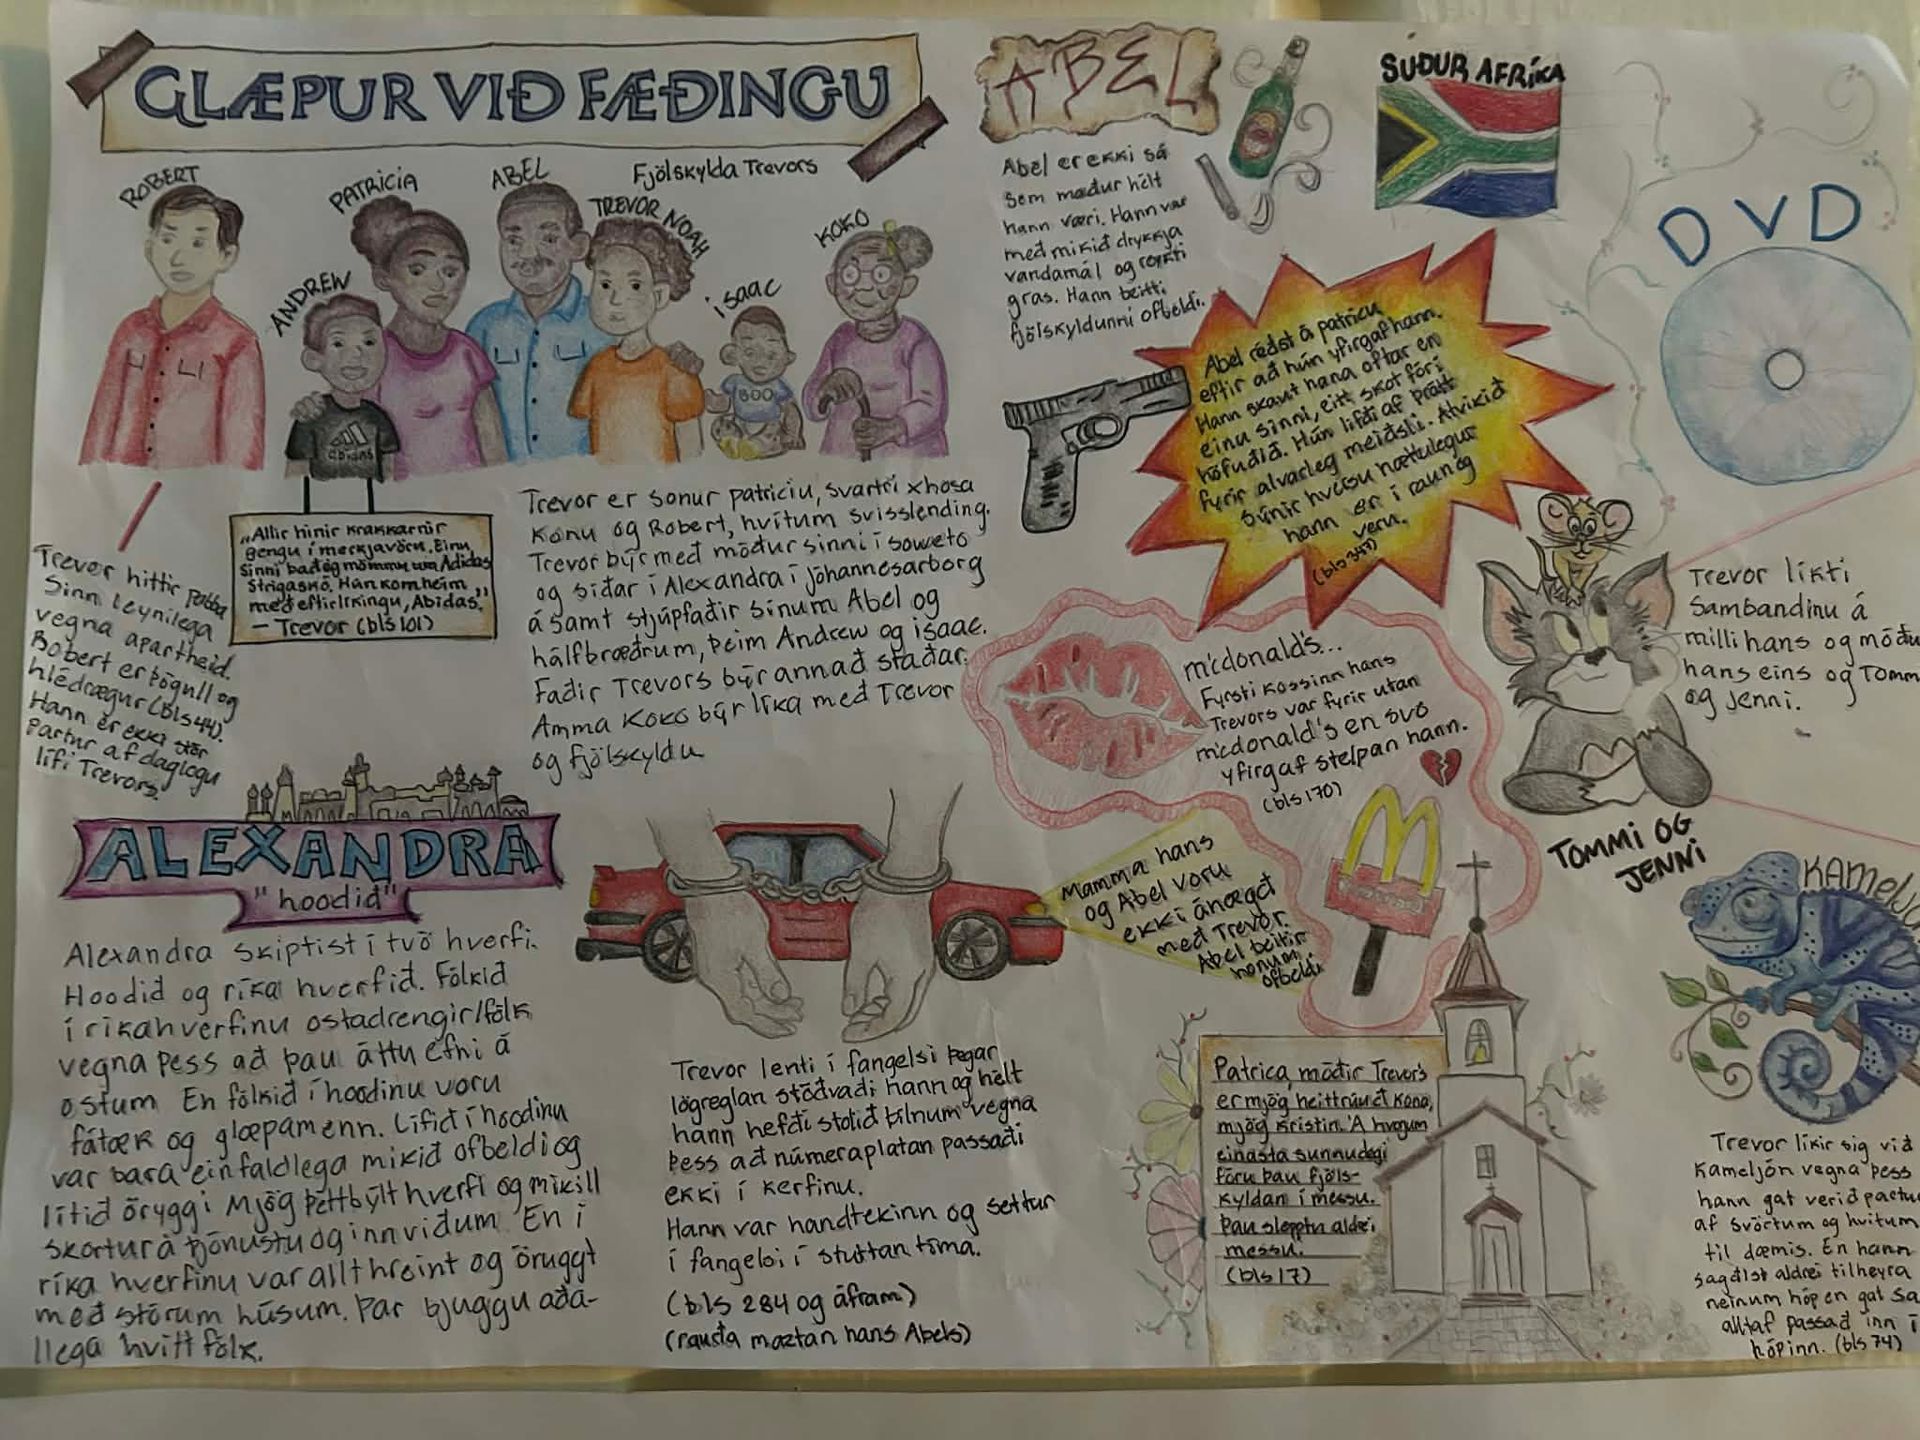 GLÆPUR VIÐ FÆÐINGU
Fjölskylda Trevors
ROBERT
ANDREW
PATRICIA
ABEL
TREVOR NOAH
ISAAC
KOKO
abidas
BOO
Trevor hittir pabba
sinn leynilega
vegna apartheid.
Robert er þögull og
hlédrægur (bls 44).
Hann er ekki stór
partur af daglegu
lífi Trevors.
„Allir hinir krakkarnir
gengu í merkjavöru. Einu
sinni bað ég mömmu um Adidas
strigaskó. Hún kom heim
með eftirlíkingu, Abidas."
— Trevor (bls 101)
Trevor er sonur patriciu, svartri xhosa
konu og Robert, hvítum svisslending.
Trevor býr með móður sinni í soweto
og síðar í Alexandra í jóhannesarborg
ásamt stjúpfaðir sínum Abel og
hálfbræðrum, þeim Andrew og isaac.
Faðir Trevors býr annað staðar.
Amma Koko býr líka með Trevor
og fjölskyldu
ABEL
Abel er ekki sá
sem maður hélt
hann væri. Hann var
með mikið drykkja
vandamál og reykti
gras. Hann beitti
fjölskyldunni ofbeldi.
SUÐUR AFRÍKA
DVD
Abel réðst á patriciu
eftir að hún yfirgaf hann.
Hann skaut hana oftar en
einu sinni, eitt skot fór í
höfuðið. Hún lifði af þrátt
fyrir alvarleg meiðsli. Atvikið
sýnir hversu hættulegur
hann er í raun og
veru.
(bls 347)
Trevor líkti
sambandinu á
milli hans og móðu
hans eins og Tomm
og jenni.
TOMMI OG
JENNI
mcdonald's...
Fyrsti kossinn hans
Trevors var fyrir utan
mcdonald's en svo
yfirgaf stelpan hann.
(bls 170)
Mamma hans
og Abel voru
ekki ánægð
með Trevor.
Abel beitir
honum
ofbeldi
ALEXANDRA
"hoodið"
Alexandra skiptist í tvö hverfi.
Hoodið og ríka hverfið. Fólkið
í ríkahverfinu ostadrengir/fólk
vegna þess að þau áttu efni á
ostum. En fólkið í hoodinu voru
fátæk og glæpamenn. Lífið í hoodinu
var bara einfaldlega mikið ofbeldi og
lítið öryggi. Mjög þéttbýlt hverfi og mikill
skortur á þjónustu og innviðum. En í
ríka hverfinu var allt hreint og öruggt
með stórum húsum. Þar bjuggu aða-
llega hvítt fólk.
Trevor lenti í fangelsi þegar
lögreglan stöðvaði hann og hélt
hann hefði stolið bílnum vegna
þess að númeraplatan passaði
ekki í kerfinu.
Hann var handtekinn og settur
í fangelsi í stuttan tíma.
(bls 284 og áfram)
(rauða maztan hans Abels)
Patrica, móðir Trevor's
er mjög heittrúuð kona,
mjög kristin. Á hvøum
einasta sunnudegi
fóru þau fjöls-
kyldan í messu.
Þau slepptu aldrei
messu.
(bls 17)
KAMELJÓ
Trevor líkir sig við
Kameljón vegna þess
hann gat verið partu
af svörtum og hvítum
til dæmis. En hann
sagðist aldrei tilheyra
neinum hóp en gat sa
alltaf passað inn í
hópinn. (bls 74)